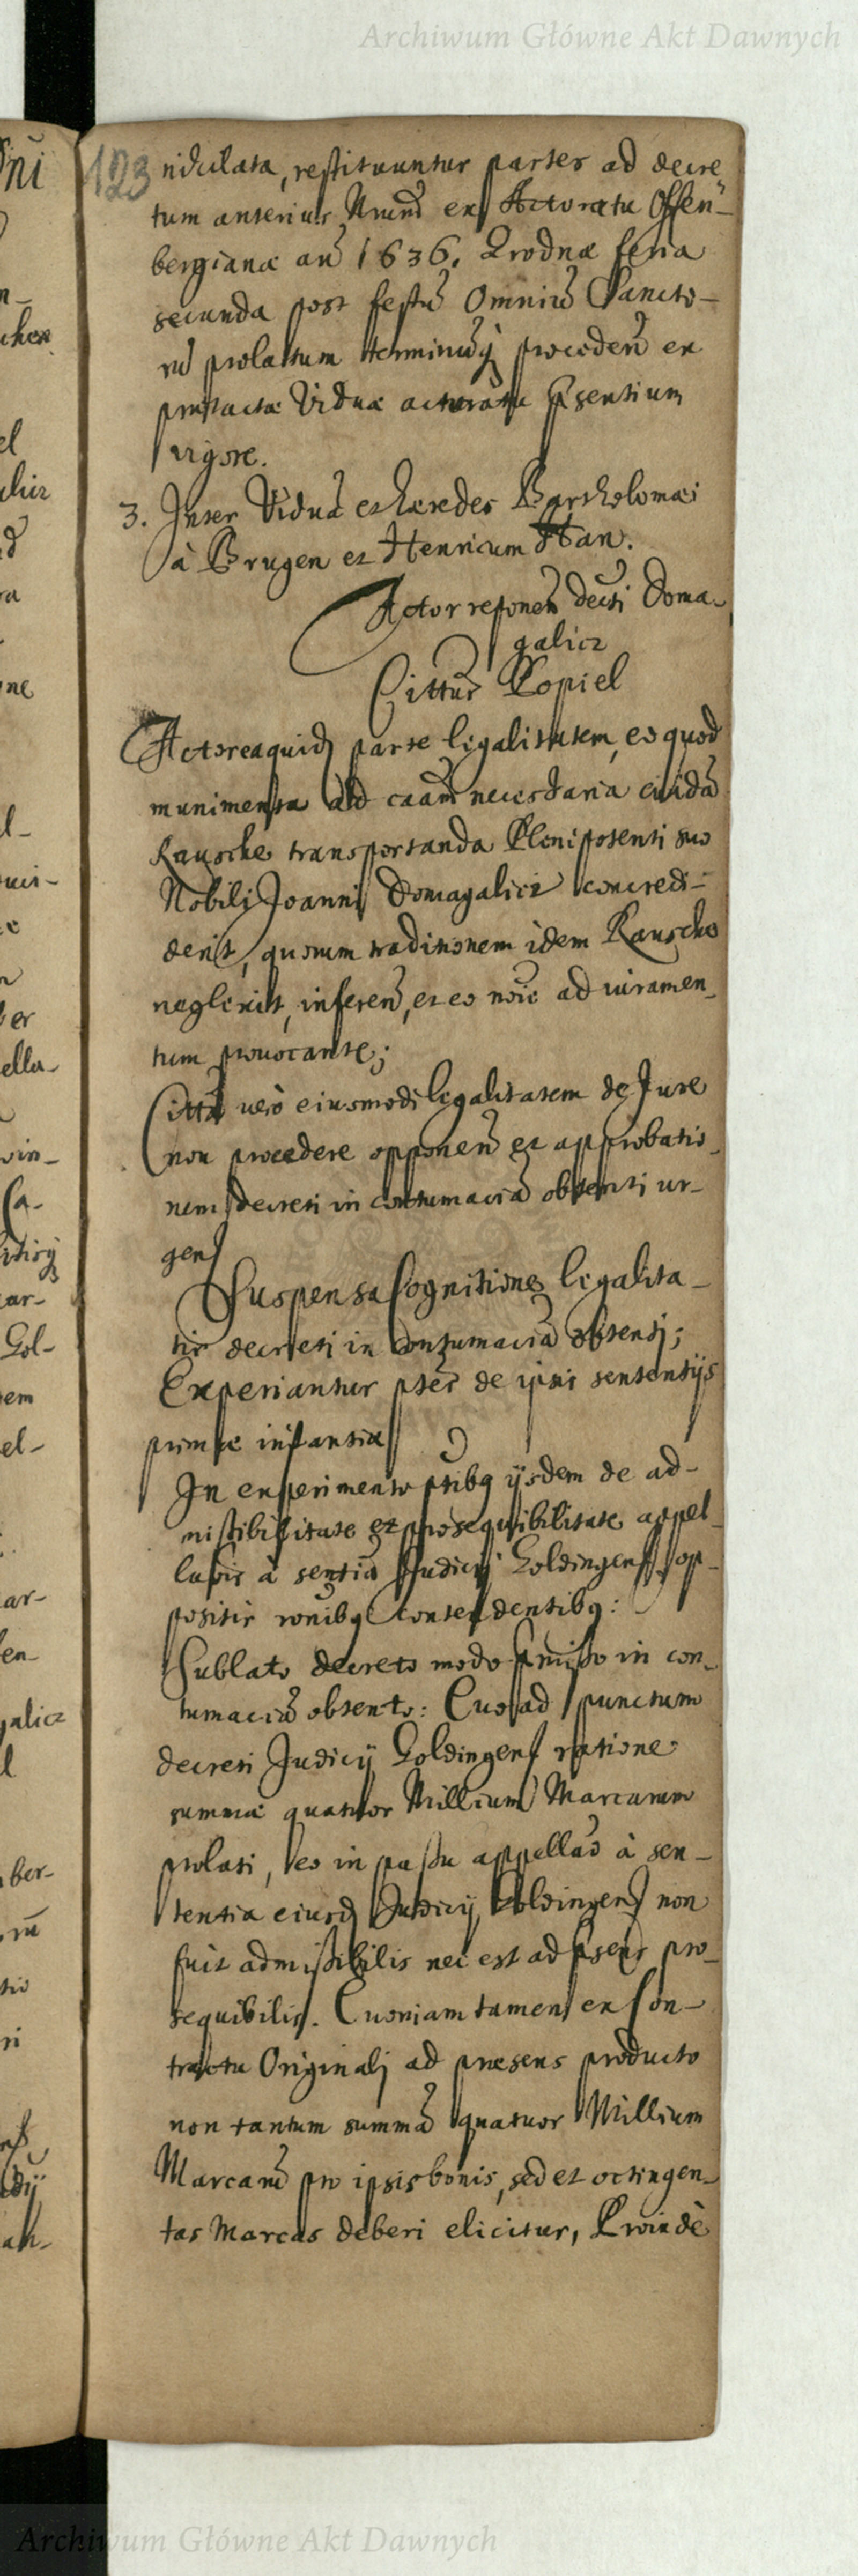 Archiwum Główne Akt Dawnych
123
nidulata, restituuntur partes ad decre
tum anterius Nrum ex Actoratu Offen-
bergiana an 1636. Grodnæ feria
secunda post festũ Omniũ Sancto-
rũ prolatum terminũq proceden ex
prætactæ Viduæ actoratu pñsentium
vigore.
3. Inter Viduã et hæredes Bartholomæi
à Brugen et Henricum Han.
Actor reponen decti Doma-
galicz
Cittus Popiel
Actorea quid parte legalitatem, eo quod
munimenta ad caam necessaria cuidã
Rausche transportanda Plenipotenti suo
Nobili Joanni Domagalicz concredi-
derit, quorum traditionem idem Rausche
neglexit, inferen, et eo noie ad iuramen-
tum provocante;
Citta vero eiusmodi legalitatem de Jure
non procedere opponen et approbatio-
nem decreti in contumaciã obtenti ur-
gen
Suspensa Cognitione legalita-
tis decreti in contumaciã obtenti;
Experiantur ptes de ipsis sententijs
primæ instantiæ
In experimento ptibq ijsdem de ad-
missibilitate et prosequibilitate appel-
laõis à sentia Judicij Goldingen op-
positis rõnibq contendentibq:
Sublato decreto modo pmisso in con-
tumaciã obtento: Cuo ad punctum
decreti Judicij Goldingen ratione
summæ quatuor Millium Marcarum
prolati, eo in passu appellaõ à sen-
tentia eiusd Judicij Goldingen non
fuit admissibilis nec est ad pñsens pro-
sequibilis. Cuoniam tamen ex Con-
tractu Originali ad præsens producto
non tantum summã quatuor Millium
Marcarũ pro ipsis bonis, sed et octingen-
tas Marcas deberi elicitur, Proindè
Archiwum Główne Akt Dawnych